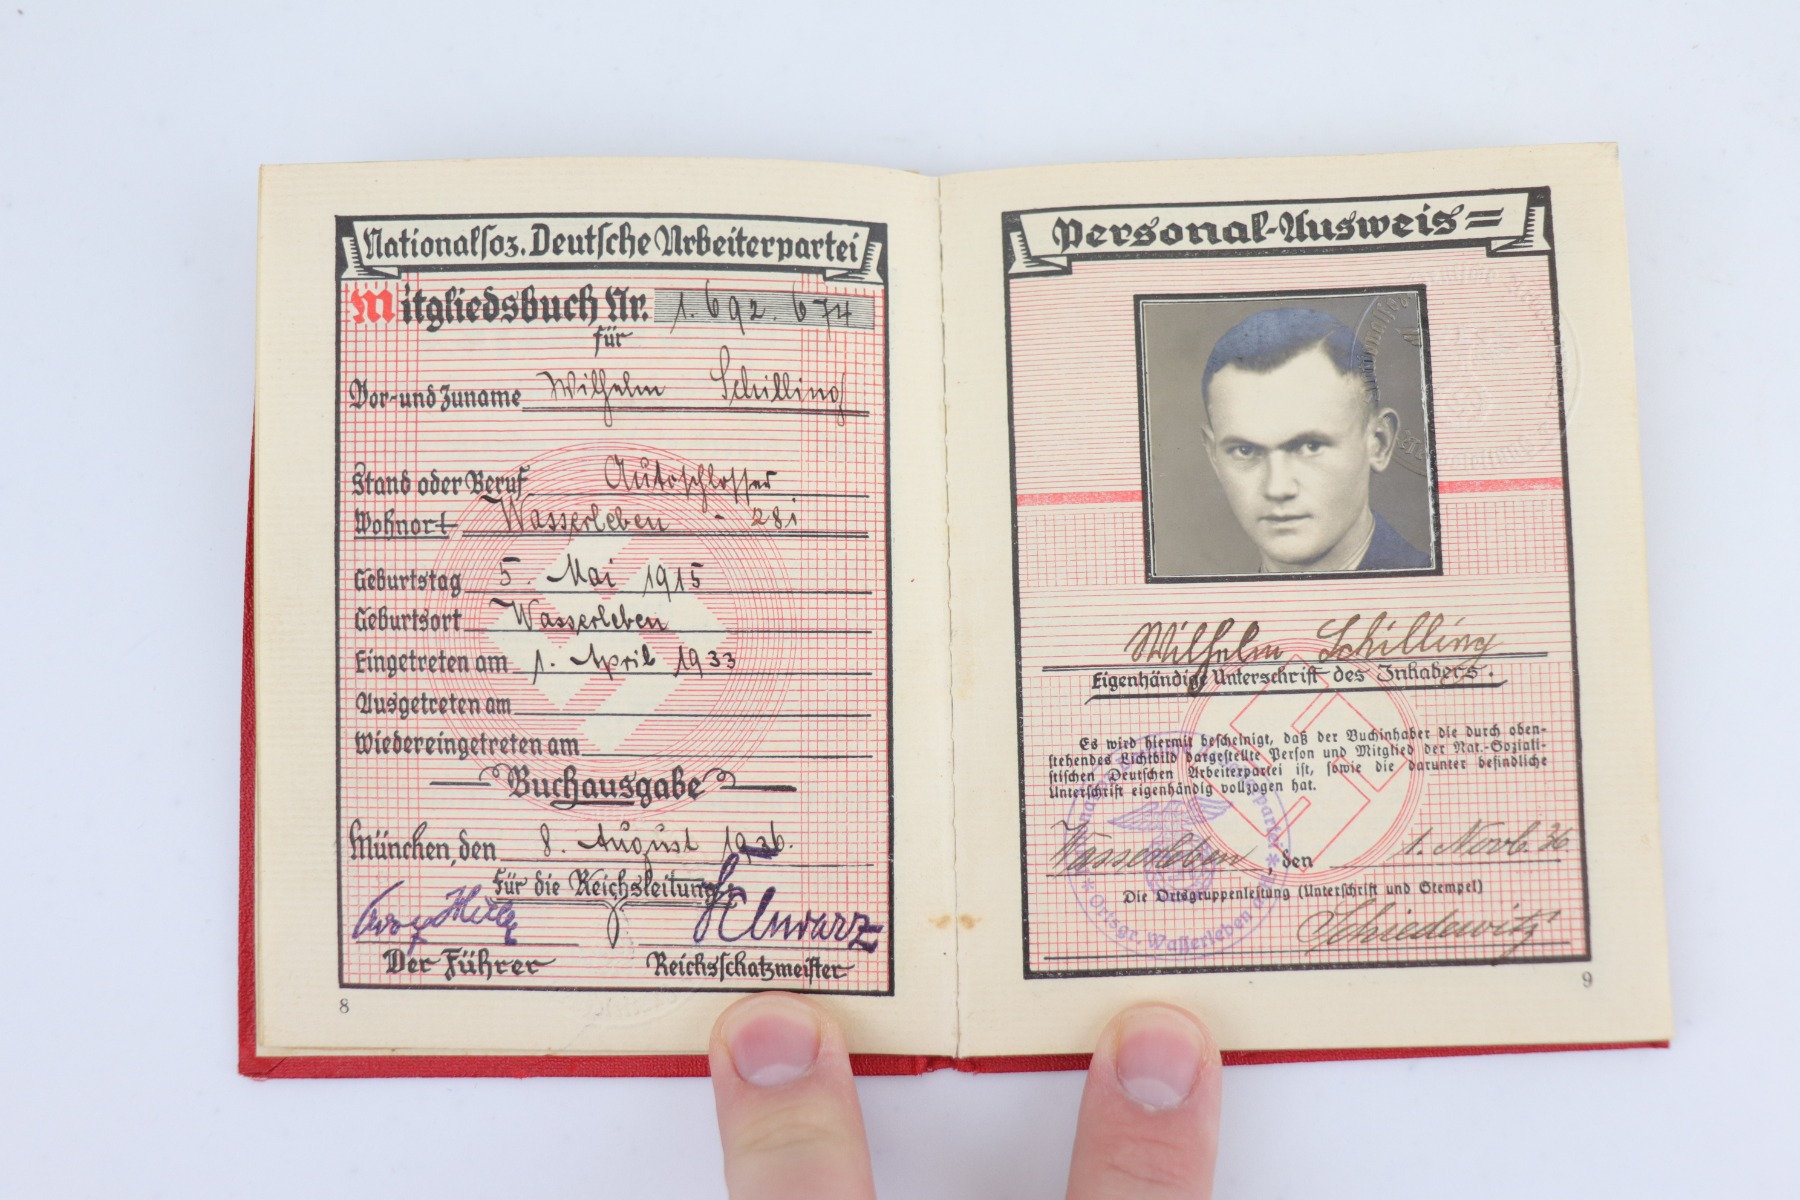 Nationalsoz. Deutsche Arbeiterpartei
Mitgliedsbuch Nr. 1.692.674
für
Vor- und Zuname Wilhelm Schilling
Stand oder Beruf Autoschlosser
Wohnort Wasserleben - 281
Geburtstag 5. Mai 1915
Geburtsort Wasserleben
Eingetreten am 1. April 1933
Ausgetreten am
Wiedereingetreten am
Buchausgabe
München, den 8. August 1936.
Für die Reichsleitung
Adolf Hitler Schwarz
Der Führer Reichsschatzmeister
8
Personal-Ausweis
Wilhelm Schilling
Eigenhändige Unterschrift des Inhabers.
Es wird hiermit bescheinigt, daß der Buchinhaber die durch oben-
stehendes Lichtbild dargestellte Person und Mitglied der Nat.-Soziali-
stischen Deutschen Arbeiterpartei ist, sowie die darunter befindliche
Unterschrift eigenhändig vollzogen hat.
Wasserleben, den 1. Novb. 36
Die Ortsgruppenleitung (Unterschrift und Stempel)
Schiedewitz
Ortsgr. Wasserleben
9